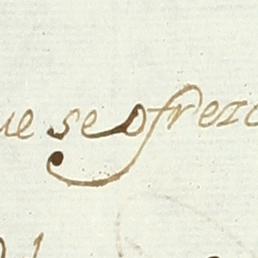 ue se ofrezc